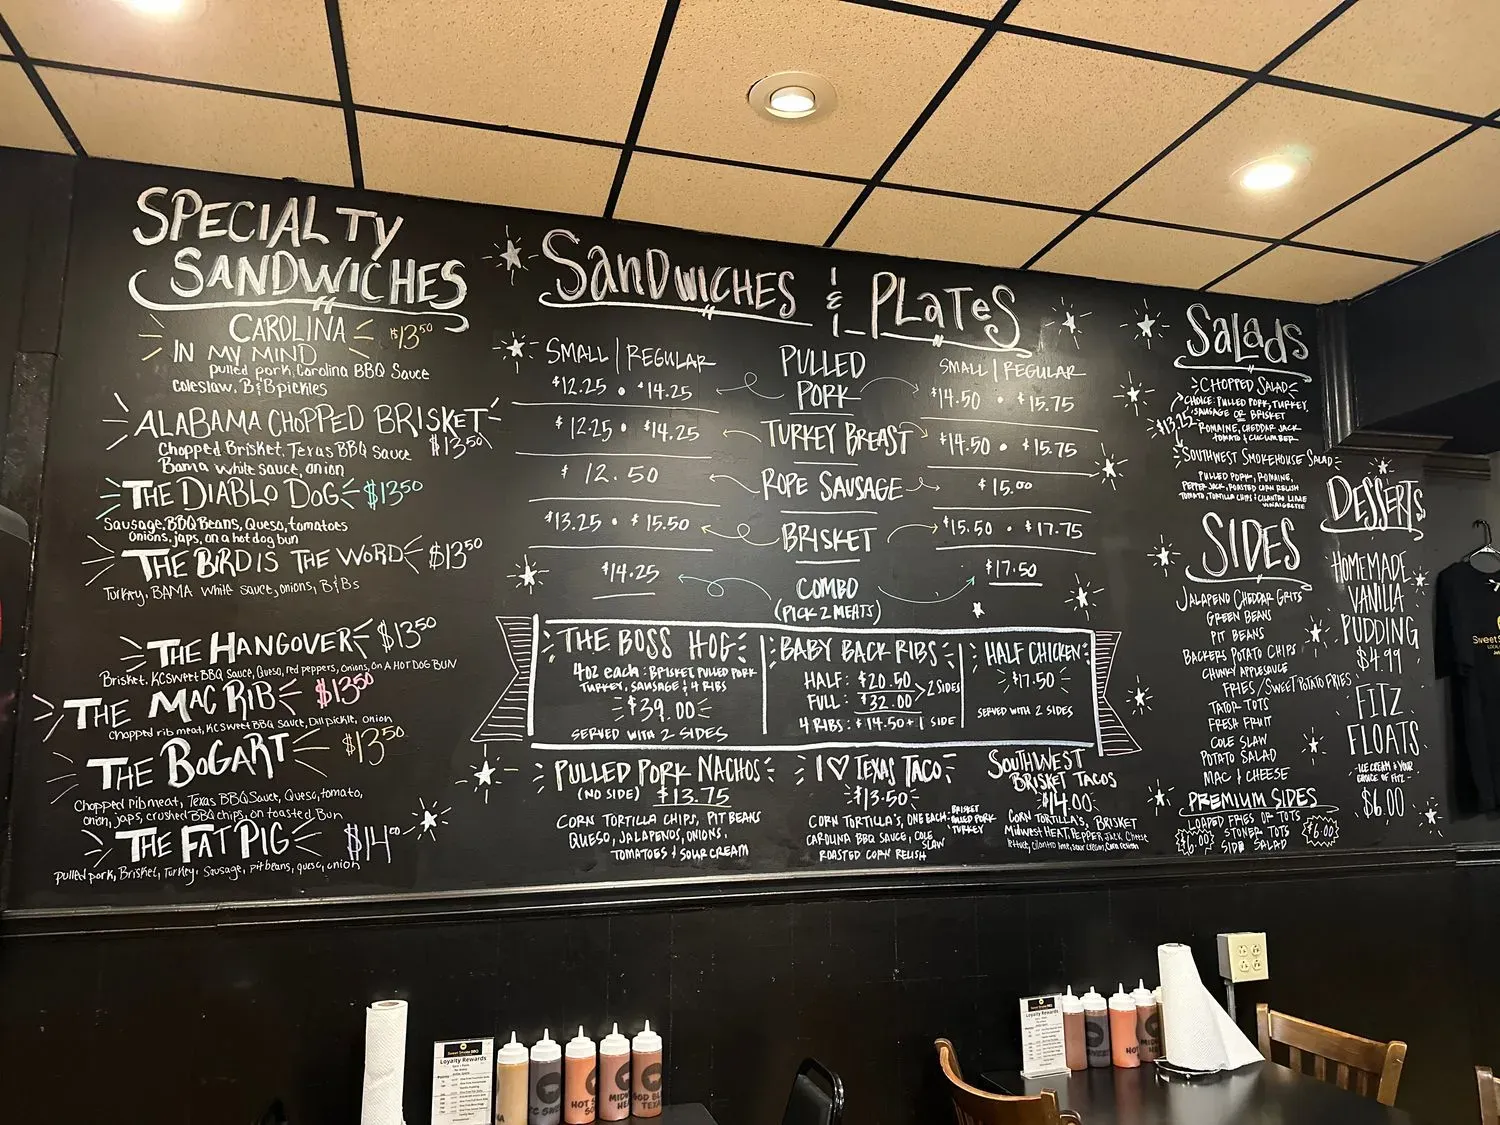 SPECIALTY
SANDWICHES
CAROLINA $13⁵⁰
IN MY MIND
pulled pork, Carolina BBQ Sauce
Coleslaw, B&B pickles
ALABAMA CHOPPED BRISKET
$13⁵⁰
Chopped Brisket, Texas BBQ Sauce
Bama white sauce, onion
THE DIABLO DOG $13⁵⁰
Sausage, BBQ Beans, Queso, tomatoes
onions, japs, on a hot dog bun
THE BIRD IS THE WORD $13⁵⁰
Turkey, BAMA white sauce, onions, B&Bs
THE HANGOVER $13⁵⁰
Brisket, KC Sweet BBQ Sauce, Queso, red peppers, onions, on A HOT DOG BUN
THE MAC RIB $13⁵⁰
chopped rib meat, KC Sweet BBQ Sauce, Dill pickle, onion
THE BOGART $13⁵⁰
Chopped rib meat, Texas BBQ Sauce, Queso, tomato,
onion, japs, crushed BBQ chips, on toasted Bun
THE FAT PIG $14⁰⁰
pulled pork, Brisket, Turkey, Sausage, pit beans, queso, onion
SANDWICHES & PLATES
SMALL | REGULAR PULLED PORK SMALL | REGULAR
$12.25 • $14.25 $14.50 • $15.75
$12.25 • $14.25 TURKEY BREAST $14.50 • $15.75
$12.50 ROPE SAUSAGE $15.00
$13.25 • $15.50 BRISKET $15.50 • $17.75
$14.25 COMBO $17.50
(PICK 2 MEATS)
THE BOSS HOG
4oz each: BRISKET, PULLED PORK
TURKEY, SAUSAGE & 4 RIBS
$39.00
SERVED WITH 2 SIDES
BABY BACK RIBS
HALF: $20.50
FULL: $32.00 > 2 SIDES
4 RIBS: $14.50 + 1 SIDE
HALF CHICKEN
$17.50
SERVED WITH 2 SIDES
PULLED PORK NACHOS
(NO SIDE) $13.75
CORN TORTILLA CHIPS, PIT BEANS
QUESO, JALAPENOS, ONIONS,
TOMATOES & SOUR CREAM
I ♡ TEXAS TACO
$13.50
CORN TORTILLA'S, ONE EACH: BRISKET PULLED PORK TURKEY
CAROLINA BBQ SAUCE, COLE SLAW
ROASTED CORN RELISH
SOUTHWEST
BRISKET TACOS
$14.00
CORN TORTILLA'S, BRISKET
MIDWEST HEAT, PEPPER JACK CHEESE
lettuce, cilantro lime, sour cream, corn relish
SALADS
CHOPPED SALAD
CHOICE: PULLED PORK, TURKEY,
SAUSAGE OR BRISKET
$13.25
ROMAINE, CHEDDAR JACK
TOMATO & CUCUMBER
SOUTHWEST SMOKEHOUSE SALAD
PULLED PORK, ROMAINE,
PEPPER JACK, ROASTED CORN RELISH
TOMATO, TORTILLA CHIPS & CILANTRO LIME
VINAIGRETTE
SIDES
JALAPENO CHEDDAR GRITS
GREEN BEANS
PIT BEANS
BACKERS POTATO CHIPS
CHUNKY APPLESAUCE
FRIES / SWEET POTATO FRIES
TATOR TOTS
FRESH FRUIT
COLE SLAW
POTATO SALAD
MAC & CHEESE
PREMIUM SIDES
LOADED FRIES OR TOTS
$6.00 STONER TOTS $6.00
SIDE SALAD
DESSERTS
HOMEMADE
VANILLA
PUDDING
$4.99
FITZ
FLOATS
- ICE CREAM & YOUR
CHOICE OF FITZ -
$6.00
Sweet Smoke BBQ
Loyalty Rewards
Sweet Smoke BBQ
Loyalty Rewards